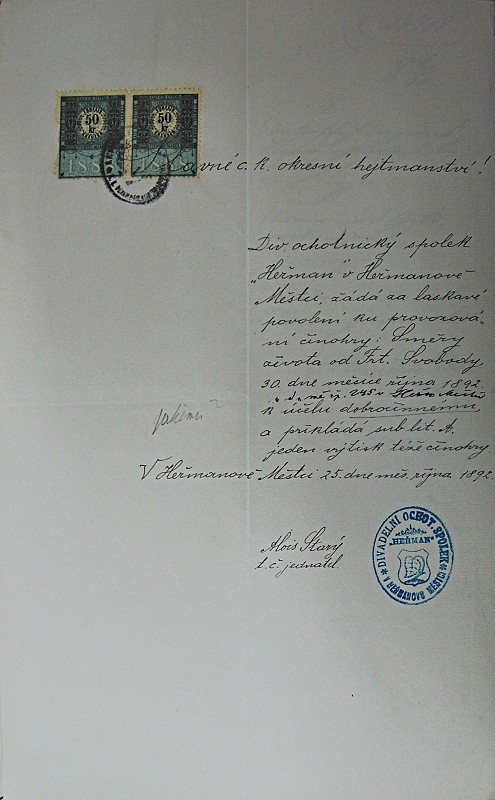 50 kr 50 kr
188
Slavné c. k. okresní hejtmanství!
Div. ochotnický spolek
„Heřman" v Heřmanově
Městci, žádá za laskavé
povolení ku provozová„
ní činohry: Směry
života od Frt. Svobody,
30. dne měsíce října 1892.
v d. m. čp. 245 v Heřm. Městci
k účelu dobročinnému,
a přikládá sub. lit. A.
jeden výtisk téže činohry.
jakému?
V Heřmanově Městci 25. dne měs. října 1892.
Alois Starý
t. č. jednatel.
DIVADELNÍ OCHOT. SPOLEK
"HEŘMAN"
V HEŘMANOVU MĚSTCI